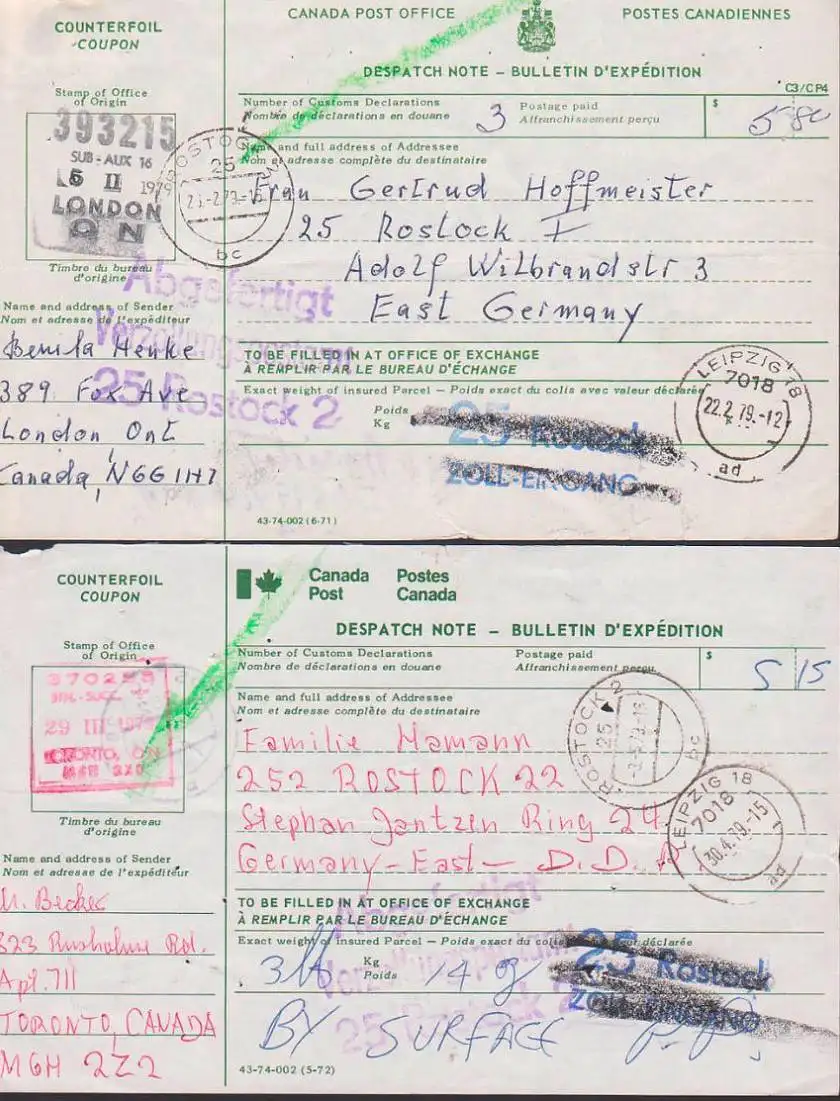 COUNTERFOIL
COUPON
CANADA POST OFFICE
POSTES CANADIENNES
DESPATCH NOTE – BULLETIN D'EXPÉDITION
C3/CP4
Stamp of Office
of Origin
393215
SUB-AUX 16
II 1979
LONDON
ON
Timbre du bureau
d'origine
Number of Customs Declarations
Nombre de déclarations en douane
3
Postage paid
Affranchissement perçu
$
5 80
Name and full address of Addressee
Nom et adresse complète du destinataire
ROSTOCK 2
25
bc
Frau Gertrud Hoffmeister
25 Rostock I
Adolf Wilbrandstr 3
East Germany
Abgefertigt
Verzollungspostamt
25 Rostock 2
Name and address of Sender
Nom et adresse de l'expéditeur
Benita Henke
389 Fox Ave
London Ont
Canada, N6G 1H7
TO BE FILLED IN AT OFFICE OF EXCHANGE
À REMPLIR PAR LE BUREAU D'ÉCHANGE
Exact weight of insured Parcel – Poids exact du colis avec valeur déclarée
Poids
Kg
25 Rostock
ZOLL-EINGANG
LEIPZIG 18
7018
22.2.79.-12
ad
43-74-002 (6-71)
COUNTERFOIL
COUPON
Canada Post
Postes Canada
DESPATCH NOTE – BULLETIN D'EXPÉDITION
Stamp of Office
of Origin
29 III 1979
TORONTO, ON
Timbre du bureau
d'origine
Number of Customs Declarations
Nombre de déclarations en douane
Postage paid
Affranchissement perçu
$
5 15
Name and full address of Addressee
Nom et adresse complète du destinataire
ROSTOCK 2
25
bc
Familie Mamann
252 ROSTOCK 22
Stephan Jantzen Ring 24
Germany-East- D.D.R
LEIPZIG 18
7018
30.4.79.-15
Name and address of Sender
Nom et adresse de l'expéditeur
M. Becker
323 Rusholme Rd.
Apt. 711
TORONTO, CANADA
M6H 2Z2
TO BE FILLED IN AT OFFICE OF EXCHANGE
À REMPLIR PAR LE BUREAU D'ÉCHANGE
Exact weight of insured Parcel – Poids exact du colis déclarée
Kg
Poids
14
Abgefertigt
Verzollungspostamt
25 Rostock 2
25 Rostock
ZOLL-EINGANG
BY SURFACE
43-74-002 (5-72)